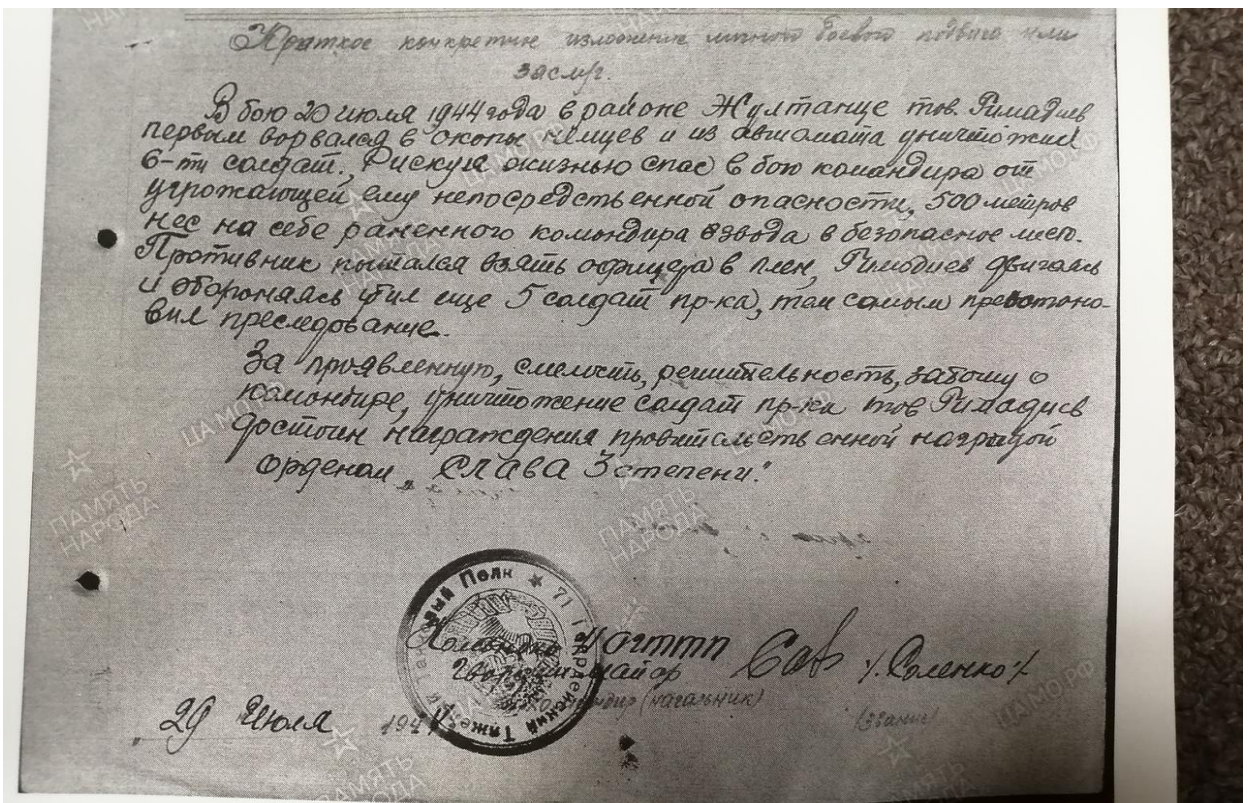 Краткое конкретное изложение личного боевого подвига или
заслуг.
В бою 20 июля 1944 года в районе Жултанце тов. Гимадиев
первым ворвался в окопы немцев и из автомата уничтожил
6-ти солдат. Рискуя жизнью спас в бою командира от
угрожающей ему непосредственной опасности, 500 метров
нес на себе раненного командира взвода в безопасное место.
Противник пытался взять офицера в плен, Гимадиев двигаясь
и обороняясь убил еще 5 солдат пр-ка, тем самым преостано-
вил преследование.
За проявленную, смелость, решительность, заботу о
командире, уничтожение солдат пр-ка тов Гимадиев
достоин награждения правительственной наградой
орденом „Слава 3 степени".
71 Гвардейский Тяжелый Танковый Полк
Командир 71 огттп
Гвардии майор
/. Соленко /
Командир (начальник)
(звание)
„29 Июля 1944
ПАМЯТЬ НАРОДА
ЦАМО.РФ
ЦАМО.РФ
ПАМЯТЬ НАРОДА
ЦАМО.РФ
ПАМЯТЬ НАРОДА
ПАМЯТЬ НАРОДА
ЦАМО.РФ
ПАМЯТЬ НАРОДА